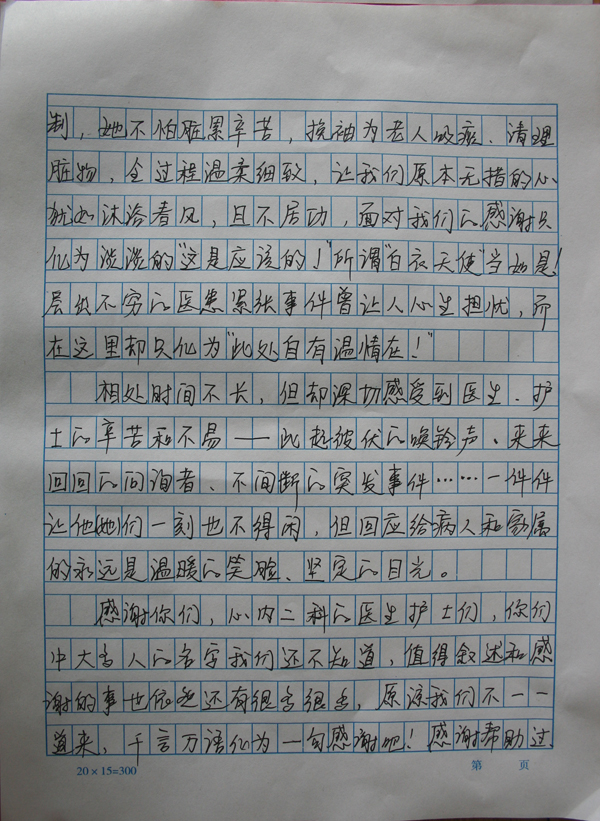 制，她不怕脏累辛苦，挽袖为老人吸痰、清理
脏物，全过程温柔细致，让我们原本无措的心
犹如沐浴春风，且不居功，面对我们的感谢只
化为淡淡的“这是应该的！”所谓“白衣天使”当如是！
层出不穷的医患紧张事件曾让人心生担忧，而
在这里却只化为“此处自有温情在！”
相处时间不长，但却深切感受到医生、护
士的辛苦和不易——此起彼伏的唤铃声、来来
回回的问询者、不间断的突发事件……一件件
让他(她)们一刻也不得闲，但回应给病人和家属
的永远是温暖的笑脸、坚定的目光。
感谢你们，心内二科的医生护士们，你们
中大多人的名字我们还不知道，值得叙述和感
谢的事也还有很多很多，原谅我们不一一
道来，千言万语化为一句感谢吧！感谢帮助过
20×15=300
第 页